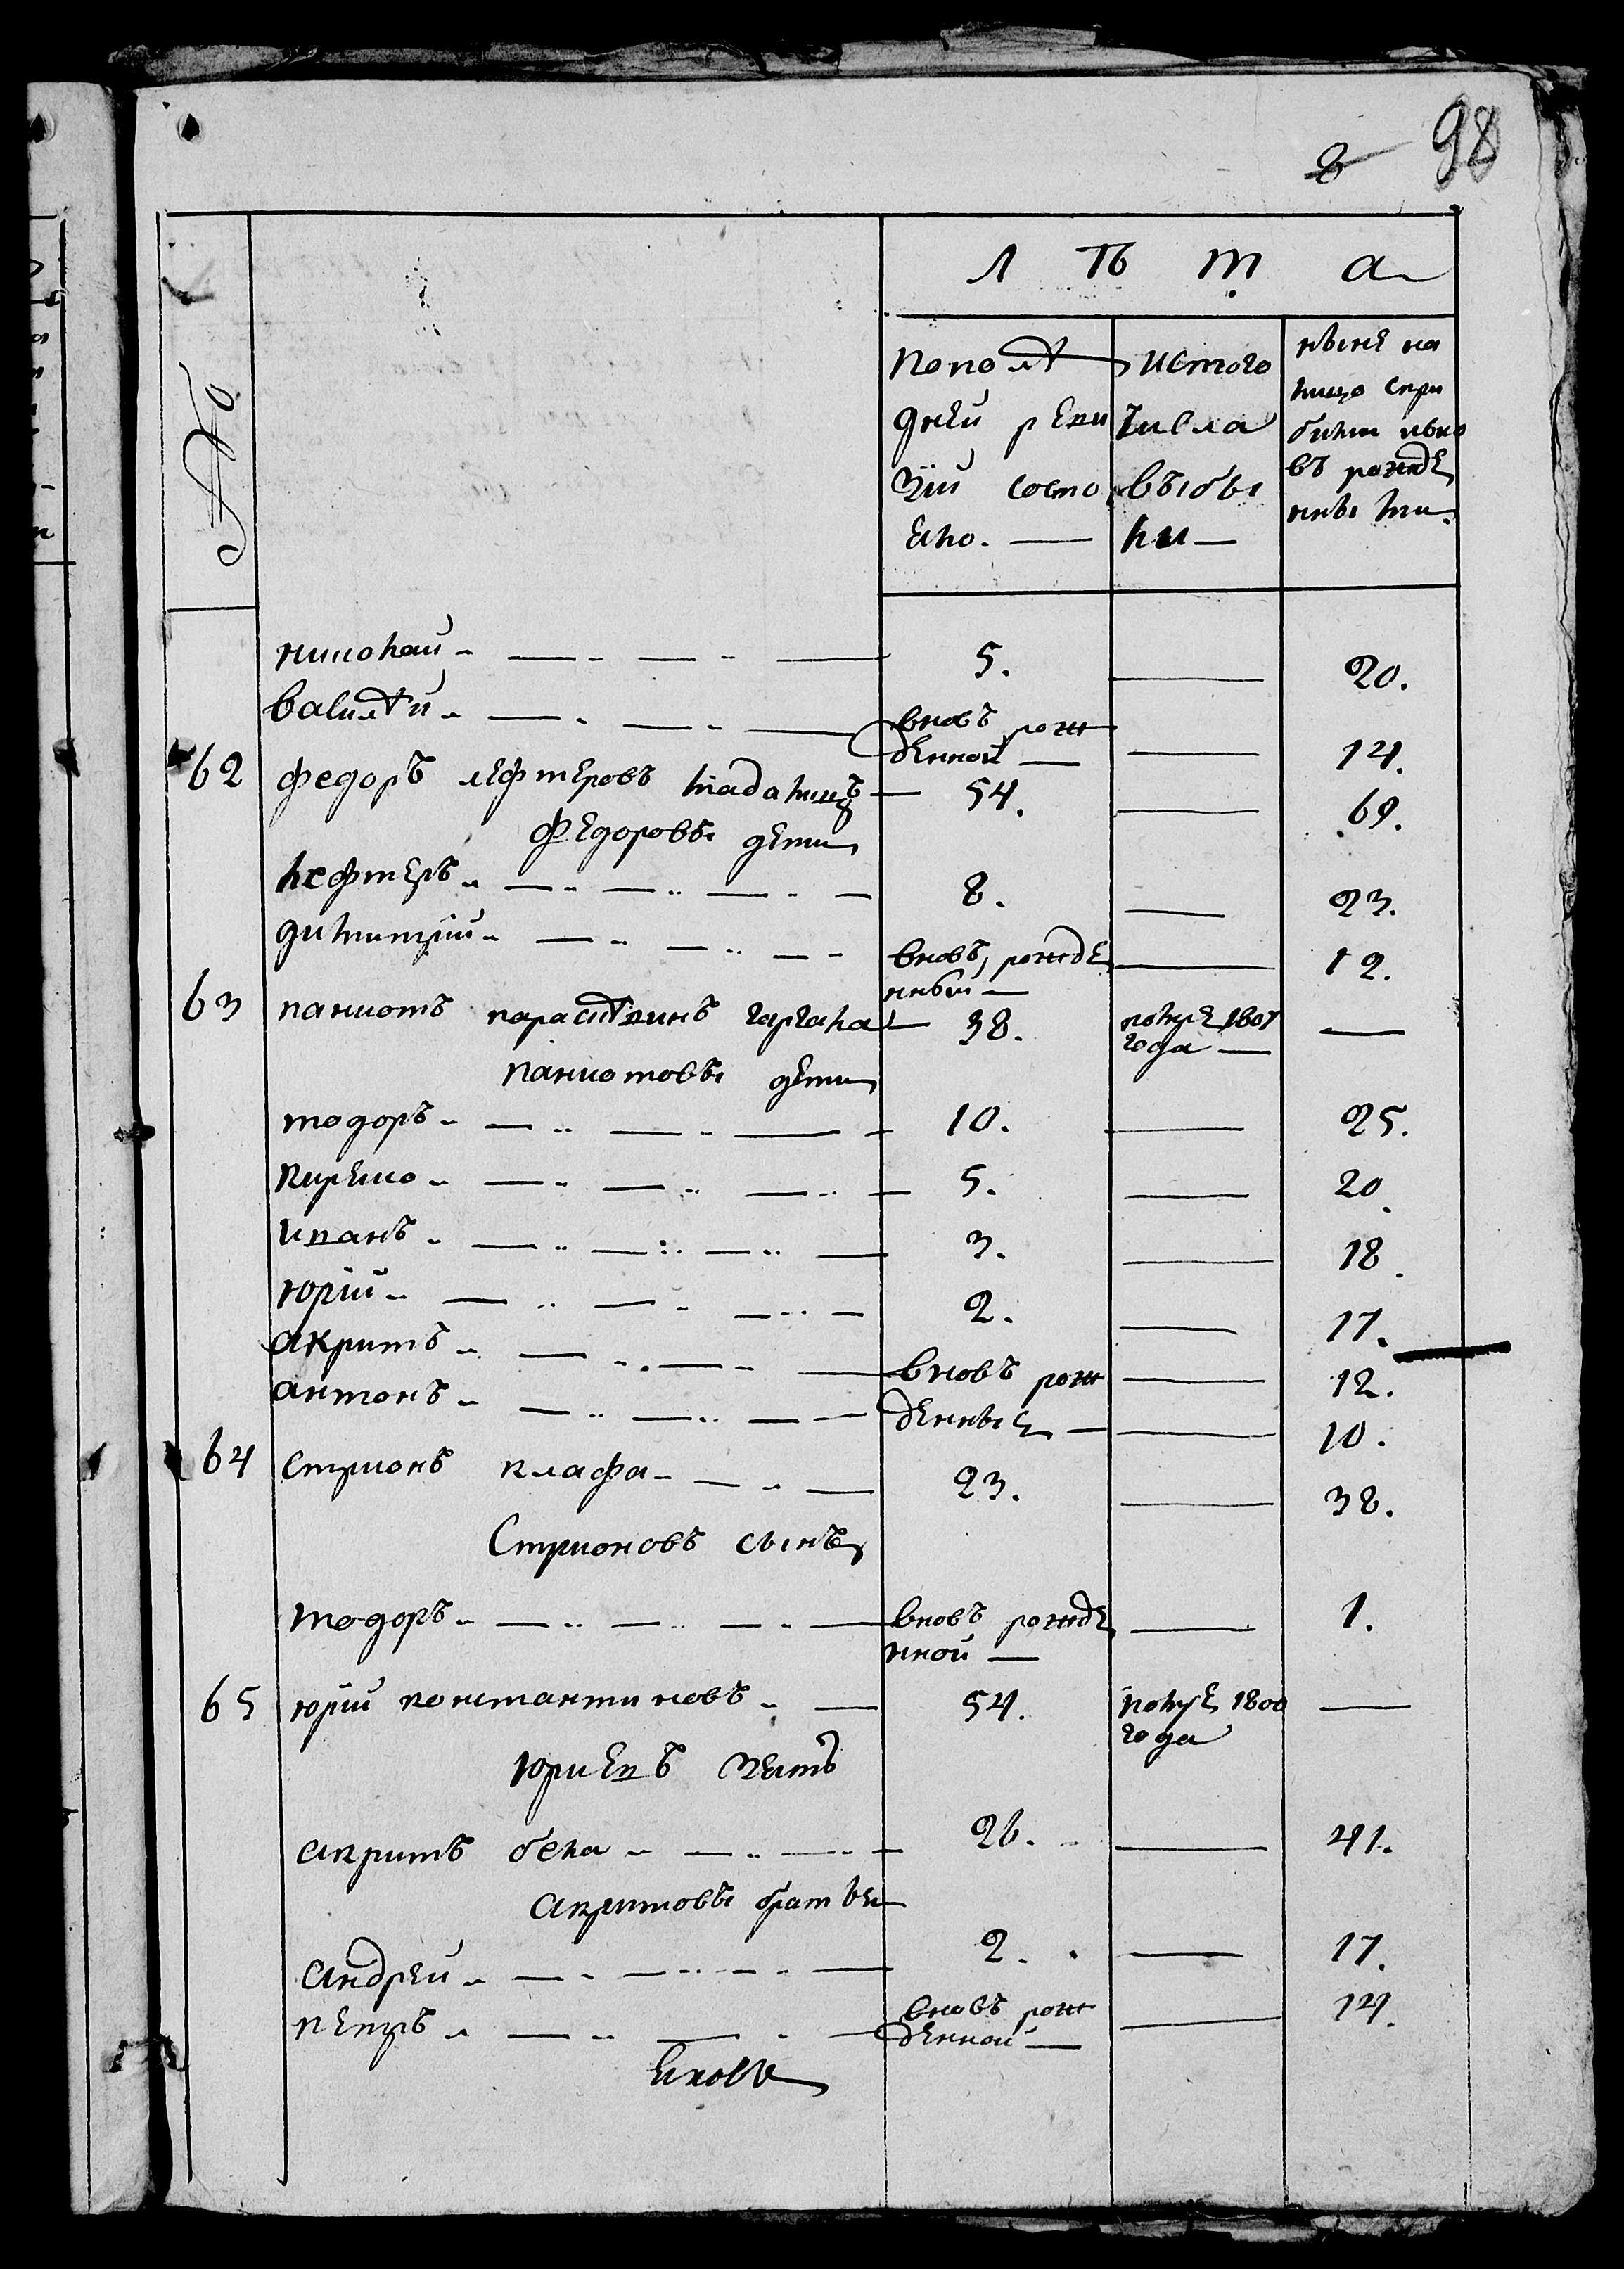 8 98
№
Лѣта
По послѣ
дней реви
зiи состо
яло.
Ис того
числа
выбы
ли
Ныне на
лицо с при
былми и вно
въ рожде
нными.
Николай 5. 20.
Василей вновъ рож
денной 14.
62 Федоръ Лефтеровъ 54. 69.
Федоровы дети
Лефтеръ 8. 23.
Димитрiй вновъ рожде
нный 12.
63 Паниотъ 38. помре 1807
года
Паниотовы дети
Тодоръ 10. 25.
5. 20.
Иванъ 3. 18.
Юрiй 2. 17.
Акритъ вновъ рож 12.
Антонъ денные 10.
64 Стрионъ Клафа 23. 38.
Стрионовъ сынъ
Тодоръ вновъ рожде 1.
нной
65 Юрiй Константиновъ 54. помре 1800
года
Юриевъ зеть
Акритъ Бела 26. 41.
Акритовы братьи
Андрей 2. 17.
Петръ вновъ рож
денной 14.